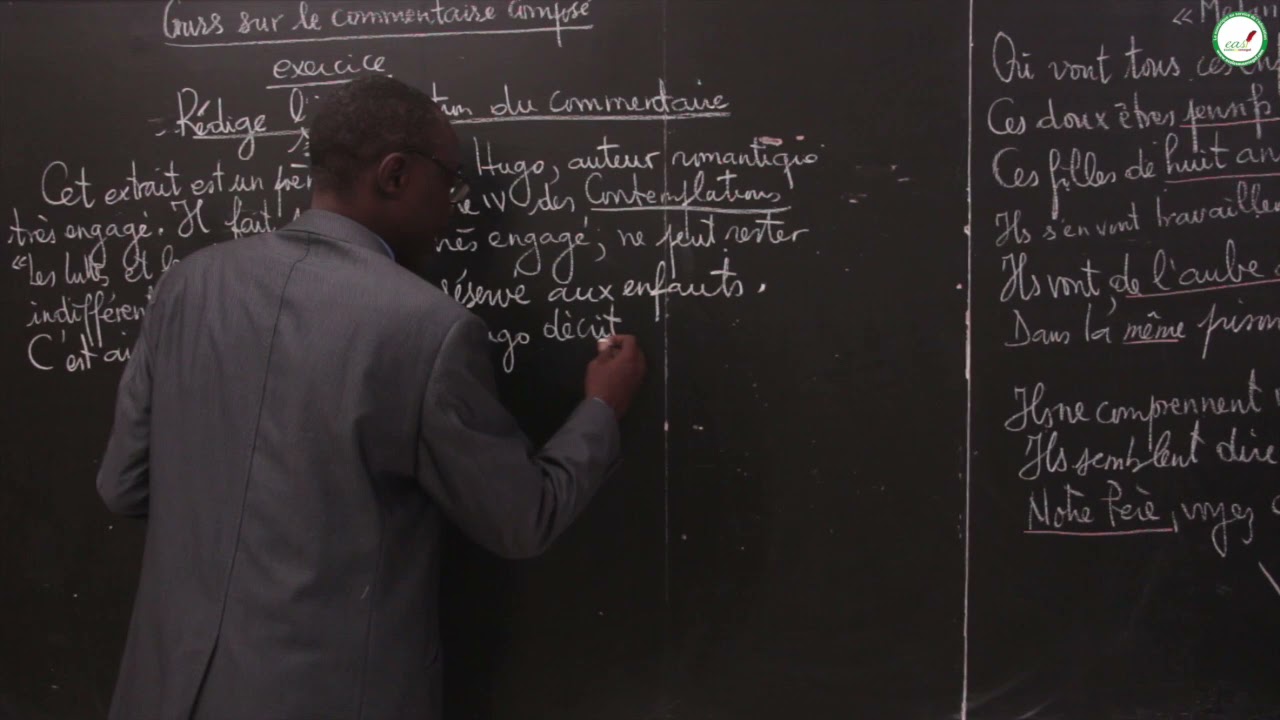 Cours sur le commentaire composé
exercice
Rédige l'i tion du commentaire
Cet extrait est un Hugo, auteur romantique
très engagé. Il fait IV des Contemplations
"Les luttes et engagé, ne peut rester
indifféren réservé aux enfants.
C'est ai ugo décrit
«
Où vont tous ces
Ces doux êtres pensifs
Ces filles de huit an
Ils s'en vont travailler
Ils vont, de l'aube
Dans la même prison
Ils ne comprennent
Ils semblent dire
Notre Père, voyez
eas